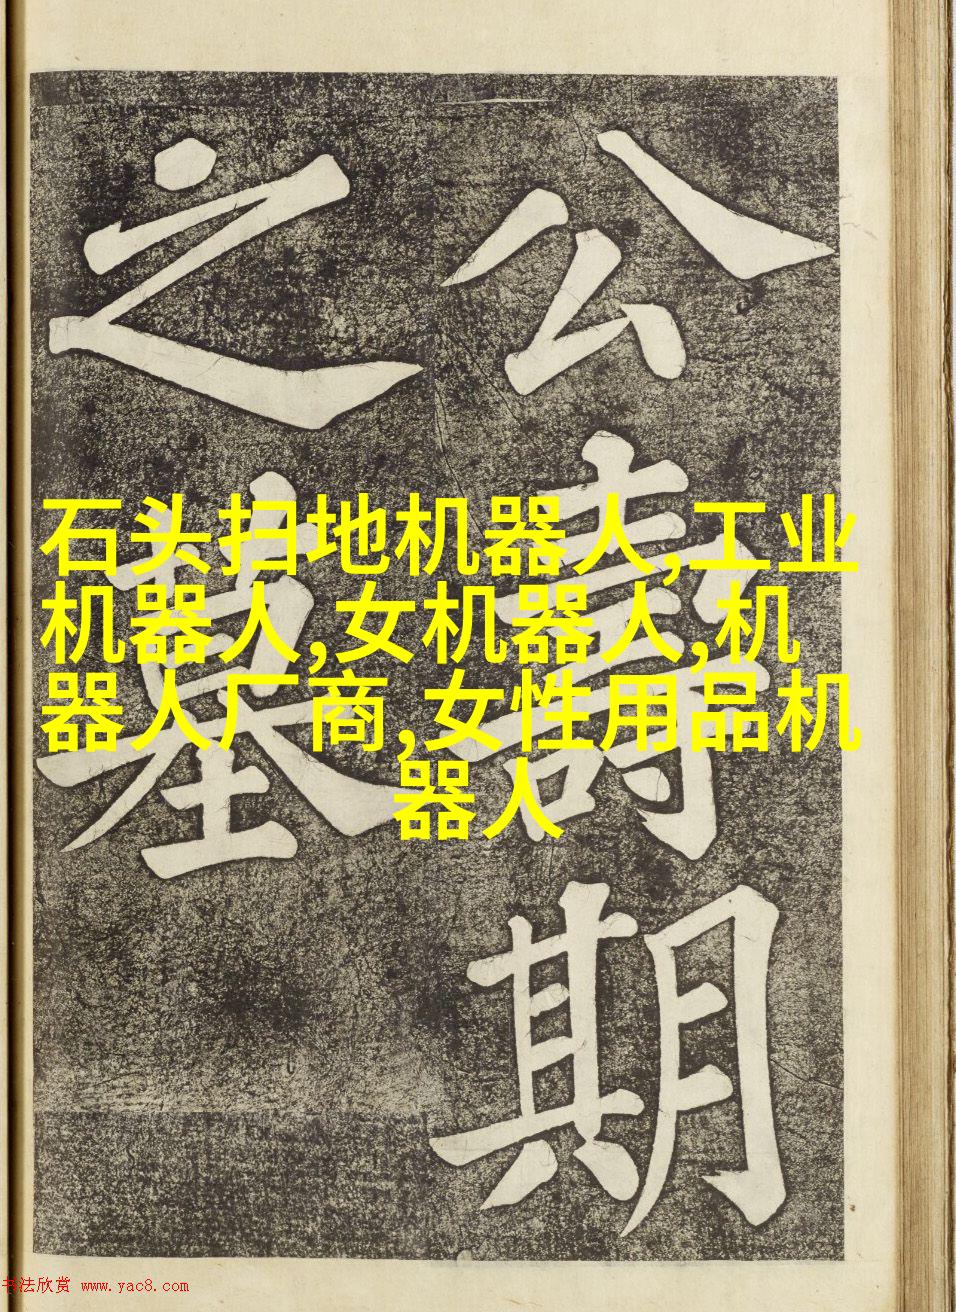 公壽期
之墓
石头扫地机器人,工业
机器人,女机器人,机
器人厂商,女性用品机
器人
书法欣赏 www.yac8.com